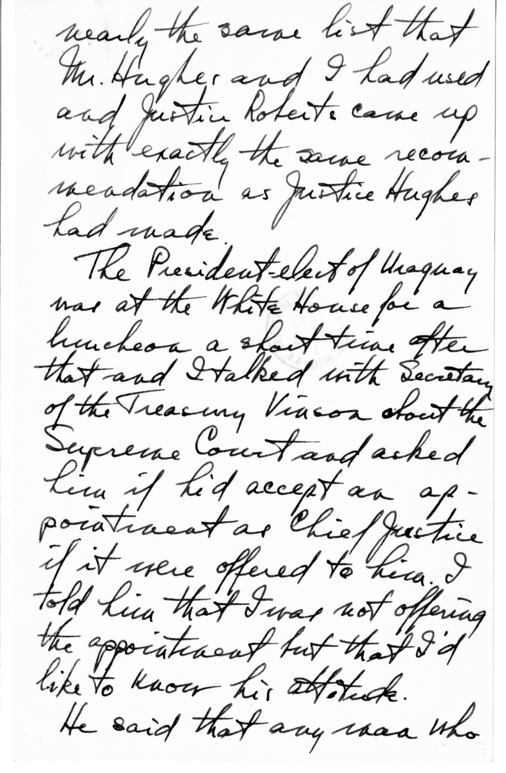 nearly the same list that
Mr. Hughes and I had used
and Justice Roberts came up
with exactly the same recom-
mendation as Justice Hughes
had made.
The President-elect of Uraguay
was at the White House for a
luncheon a short time after
that and I talked with Secretary
of the Treasury Vinson about the
Supreme Court and asked
him if he'd accept an ap-
pointment as Chief Justice
if it were offered to him. I
told him that I was not offering
the appointment but that I'd
like to know his attitude.
He said that any man who